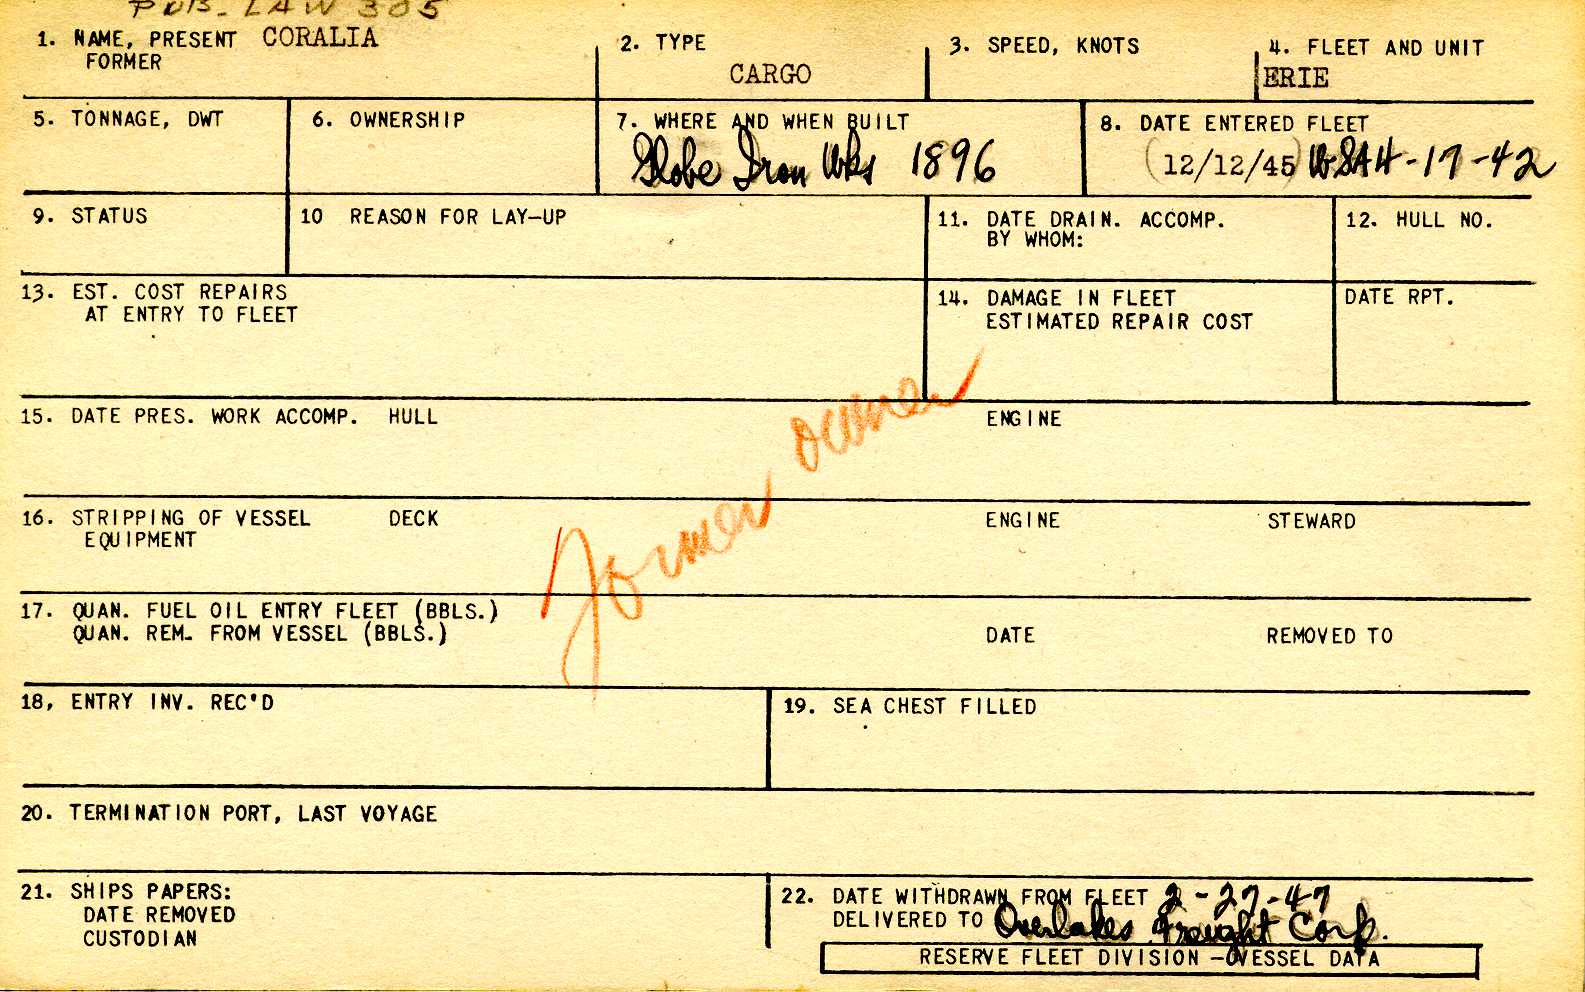 PUB- LAW 305
1. NAME, PRESENT CORALIA
FORMER
2. TYPE
CARGO
3. SPEED, KNOTS
4. FLEET AND UNIT
ERIE
5. TONNAGE, DWT
6. OWNERSHIP
7. WHERE AND WHEN BUILT
Globe Iron Wks 1896
8. DATE ENTERED FLEET
(12/12/45) WSA 4-17-42
9. STATUS
10 REASON FOR LAY-UP
11. DATE DRAIN. ACCOMP.
BY WHOM:
12. HULL NO.
13. EST. COST REPAIRS
AT ENTRY TO FLEET
14. DAMAGE IN FLEET
ESTIMATED REPAIR COST
DATE RPT.
15. DATE PRES. WORK ACCOMP. HULL
ENGINE
Former owner
16. STRIPPING OF VESSEL DECK
EQUIPMENT
ENGINE
STEWARD
17. QUAN. FUEL OIL ENTRY FLEET (BBLS.)
QUAN. REM. FROM VESSEL (BBLS.)
DATE
REMOVED TO
18, ENTRY INV. REC'D
19. SEA CHEST FILLED
20. TERMINATION PORT, LAST VOYAGE
21. SHIPS PAPERS:
DATE REMOVED
CUSTODIAN
22. DATE WITHDRAWN FROM FLEET 2-27-47
DELIVERED TO Overlakes Freight Corp.
RESERVE FLEET DIVISION - VESSEL DATA